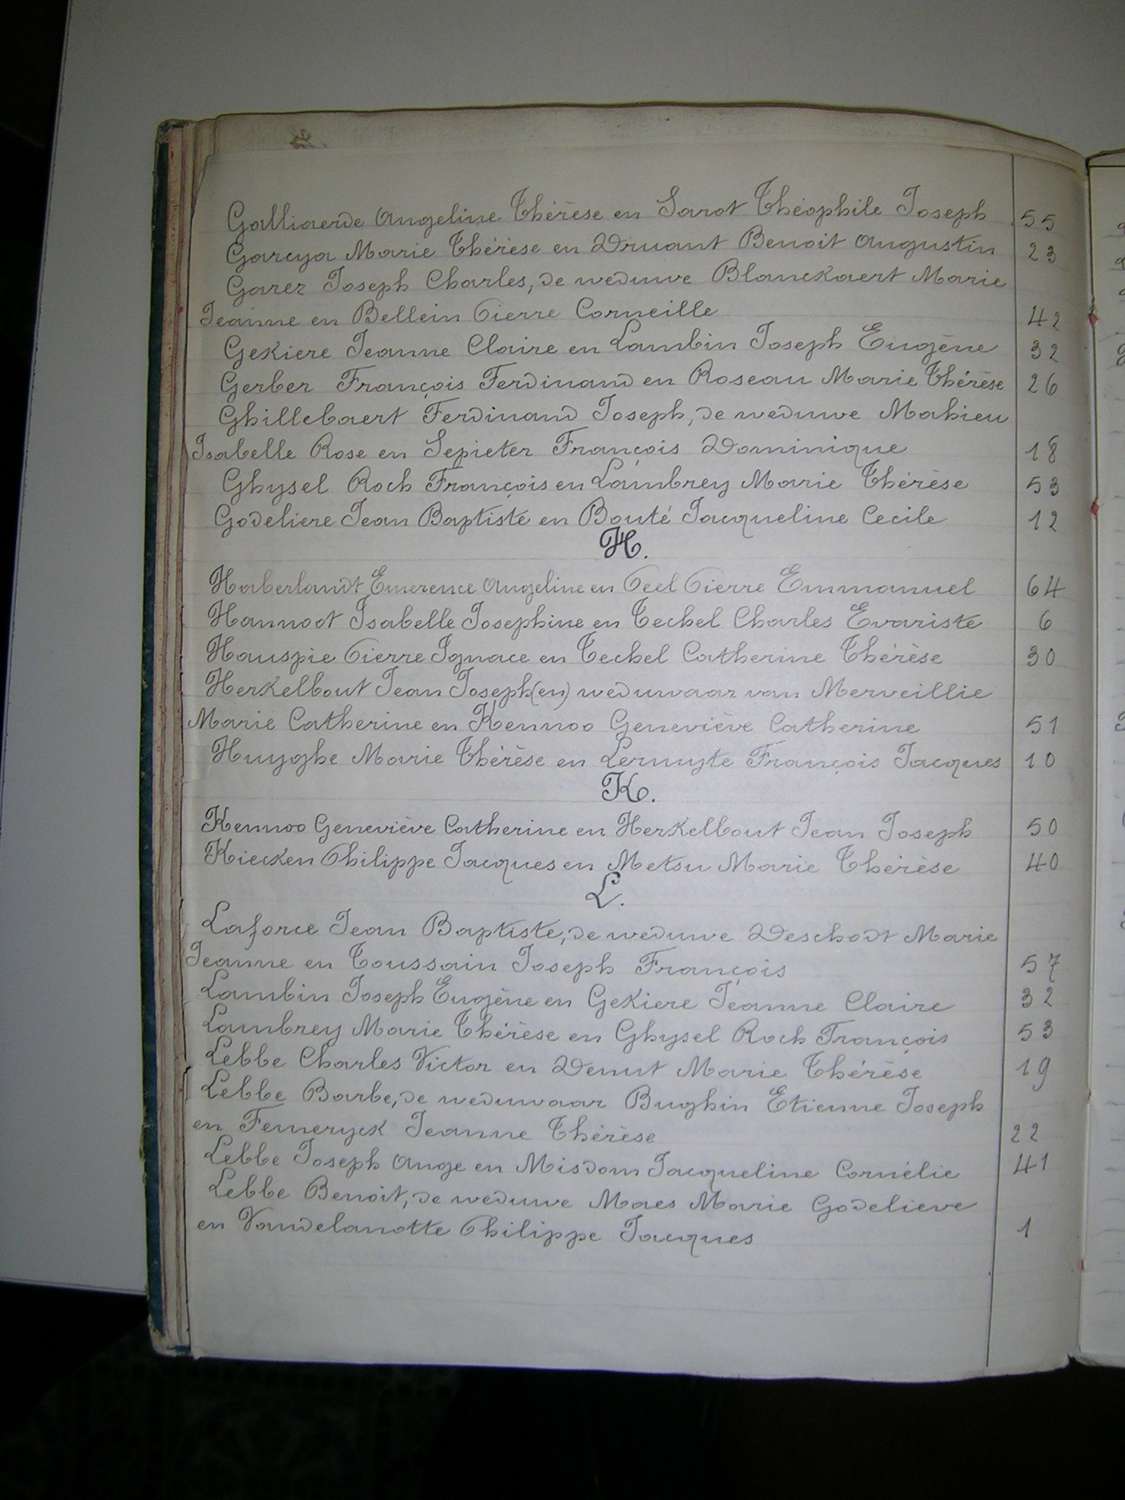 Galliaerde Angeline Thérèse en Sarot Théophile Joseph 55
Garcya Marie Thérèse en Druant Benoit Augustin 23
Garez Joseph Charles, de weduwe Blanckaert Marie
Jeanne en Bellein Pierre Corneille 42
Gekiere Jeanne Claire en Lambin Joseph Eugène 32
Gerber François Ferdinand en Roseau Marie Thérèse 26
Ghillebaert Ferdinand Joseph, de weduwe Mahieu
Isabelle Rose en Sepieter François Dominique 18
Ghysel Roch François en Lambrey Marie Thérèse 53
Godeliere Jean Baptiste en Bouté Jacqueline Cecile 12
H.
Haberlandt Emerence Angeline en Peel Pierre Emmanuel 64
Hannoot Isabelle Josephine en Techel Charles Evariste 6
Hauspie Pierre Ignace en Techel Catherine Thérèse 30
Herkelbout Jean Joseph (en) weduwaar van Merveillie
Marie Catherine en Kennoo Geneviève Catherine 51
Huyghe Marie Thérèse en Lernuyte François Jacques 10
K.
Kennoo Geneviève Catherine en Herkelbout Jean Joseph 50
Kiecken Philippe Jacques en Metsu Marie Thérèse 40
L.
Laforce Jean Baptiste, de weduwe Deschodt Marie
Jeanne en Toussain Joseph François 57
Lambin Joseph Eugène en Gekiere Jeanne Claire 32
Lambrey Marie Thérèse en Ghysel Roch François 53
Lebbe Charles Victor en Denut Marie Thérèse 19
Lebbe Barbe, de weduwaar Bughin Etienne Joseph
en Femeryck Jeanne Thérèse 22
Lebbe Joseph Ange en Misdom Jacqueline Cornélie 41
Lebbe Benoit, de weduwe Maes Marie Godelieve
en Vandelanotte Philippe Jacques 1